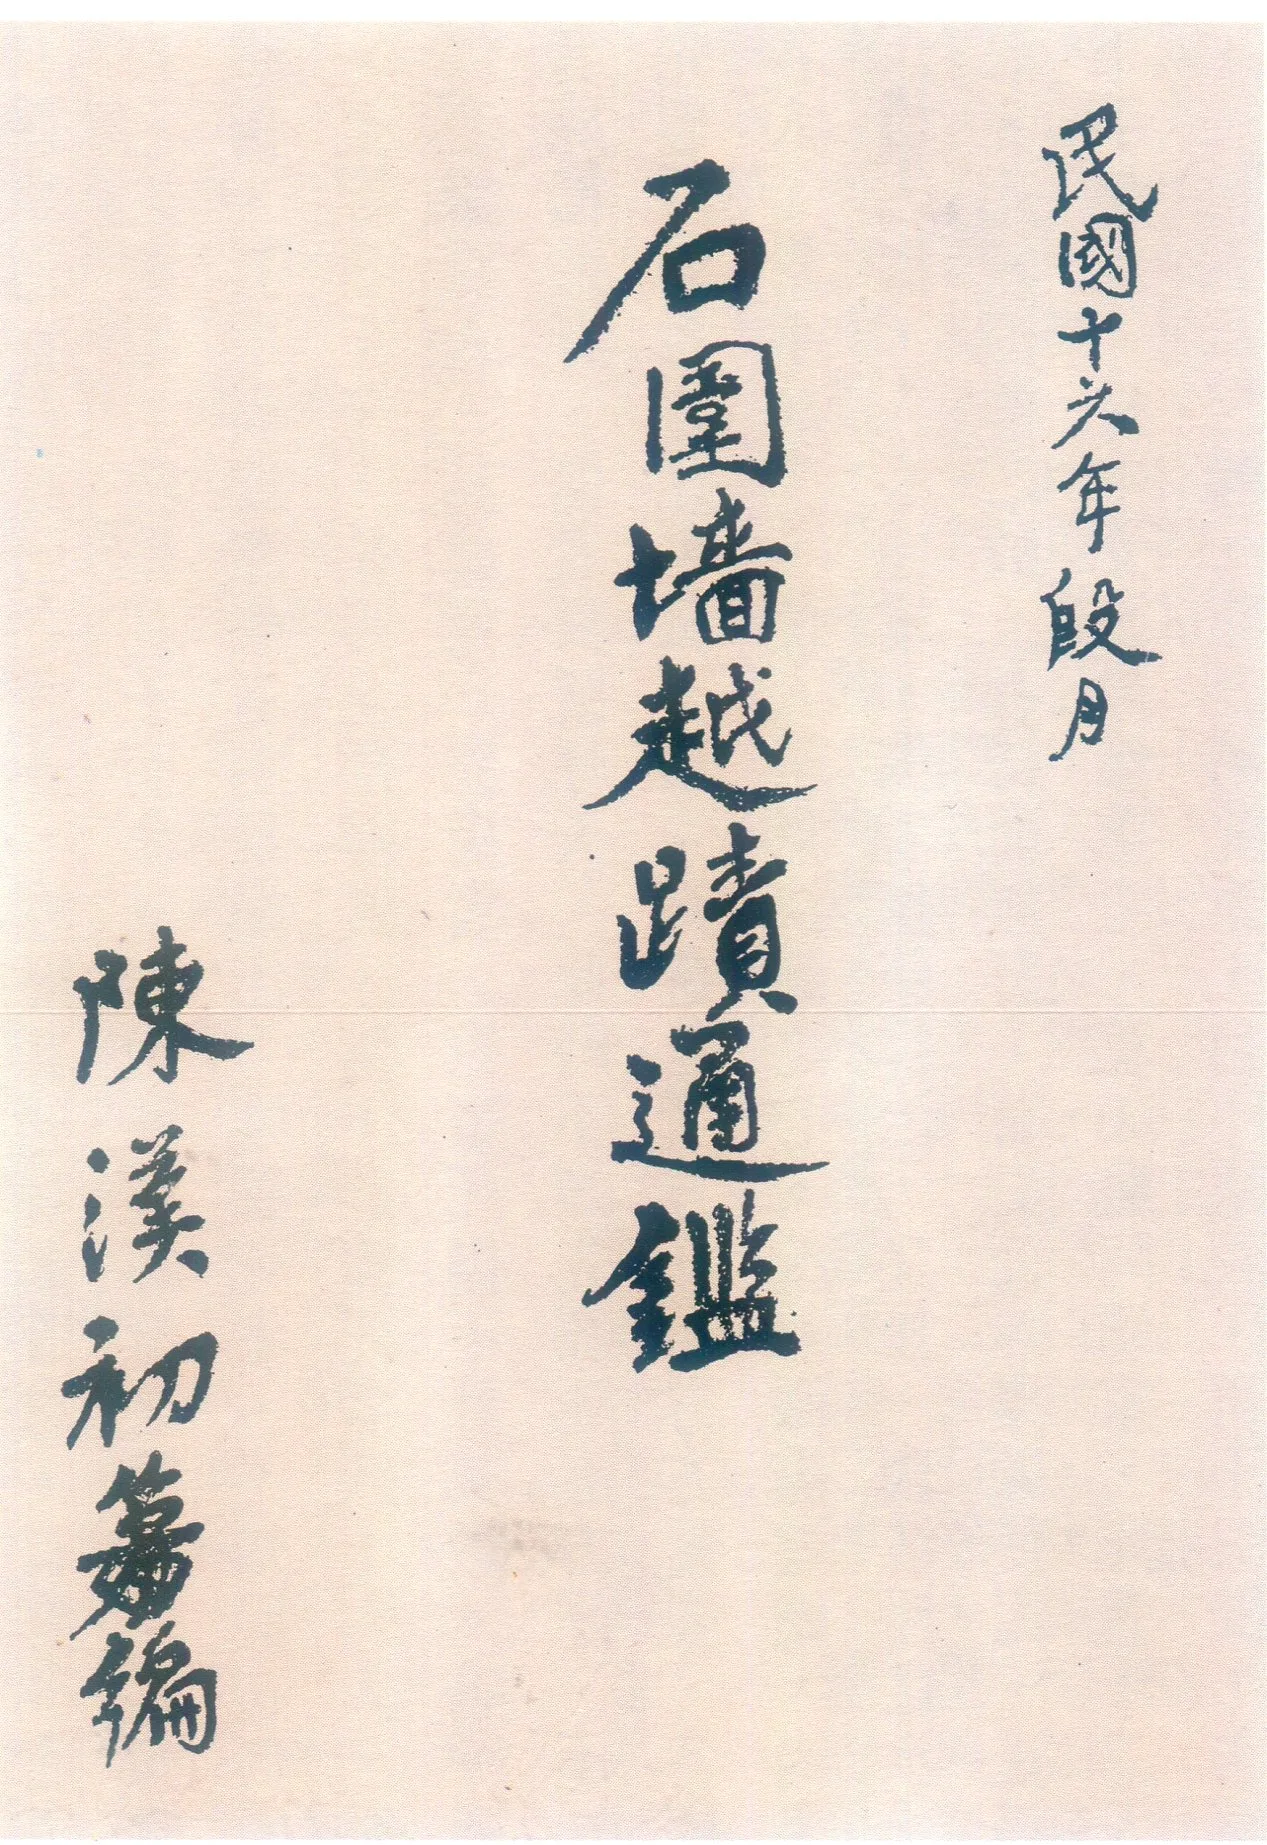 民國十六年段月
石圍墻越蹟通鑑
陳漢初纂編